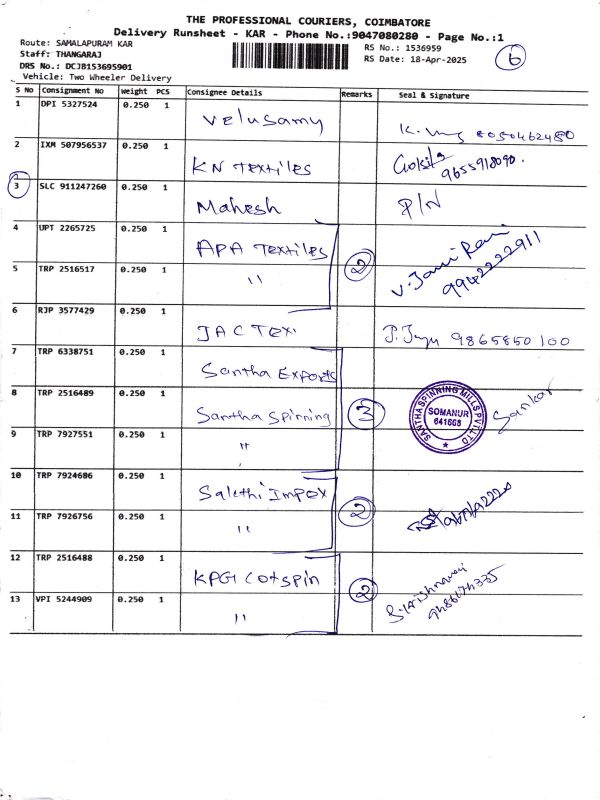 THE PROFESSIONAL COURIERS, COIMBATORE
Delivery Runsheet - KAR - Phone No.:9047080280 - Page No.:1
Route: SAMALAPURAM KAR
RS No.: 1536959
Staff: THANGARAJ
RS Date: 18-Apr-2025
6
DRS No.: DCJB153695901
Vehicle: Two Wheeler Delivery
S No Consignment No Weight PCS Consignee Details Remarks Seal & Signature
1 DPI 5327524 0.250 1 Velusamy
2 IXM 507956537 0.250 1 KN Textiles 9655918090.
3 SLC 911247260 0.250 1 Mahesh P/N
4 UPT 2265725 0.250 1 APA Textiles 2 V. Jansi Rani
5 TRP 2516517 0.250 1 " 9942222911
6 RJP 3577429 0.250 1 JAC Tex 9865850100
7 TRP 6338751 0.250 1 Santha Exports
8 TRP 2516489 0.250 1 Santha Spinning 3 SANTHA SPINNING MILLS PVT LTD SOMANUR 641668 Sankar
9 TRP 7927551 0.250 1 "
10 TRP 7924686 0.250 1 Sakthi Impex 2
11 TRP 7926756 0.250 1 "
12 TRP 2516488 0.250 1 KPG Cotspin 2
13 VPI 5244909 0.250 1 "